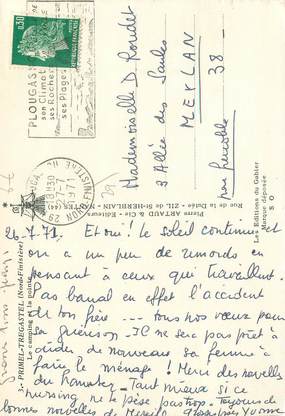 0.30
REPUBLIQUE FRANÇAISE
PLOUGAS
son Climat
ses Rochers
ses Plages
18H30
27-7
1971
29
FINISTERE
Mademoiselle D. Roudet
3 Allée des Saules
MEYLAN
38 -
par Grenoble
Les Editions du Gabier
Marque déposée
S O
Pierre ARTAUD & Cie - Editeurs
Rue de la Dutée - Z.I.L. de St-HERBLAIN - NANTES (44)
3. - PRIMEL-TREGASTEL (Nord-Finistère)
Le camping et la pointe
26.7.71 Et oui ! le soleil continue et
on a un peu de remords en
pensant à ceux qui travaillent.
Pas banal en effet l'accident
de ton frère ... tous nos vœux pour
sa guérison - JC ne sera pas prêt à
aider de nouveau sa femme à
faire le ménage ! Merci des nouvelles
du - Tant mieux si ce
nursing ne te pèse pas trop - Toujours de
bonnes nouvelles de Yvonne